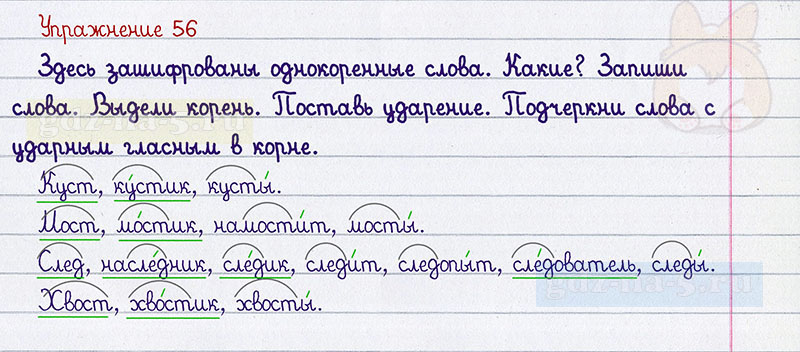 Упражнение 56
Здесь зашифрованы однокоренные слова. Какие? Запиши
слова. Выдели корень. Поставь ударение. Подчеркни слова с
ударным гласным в корне.
Куст, ку́стик, кусты́.
Мост, мо́стик, намости́т, мосты́.
След, насле́дник, сле́дик, следи́т, следопы́т, сле́дователь, следы́.
Хвост, хво́стик, хвосты́.
gdz-na-5.ru
gdz-na-5.ru